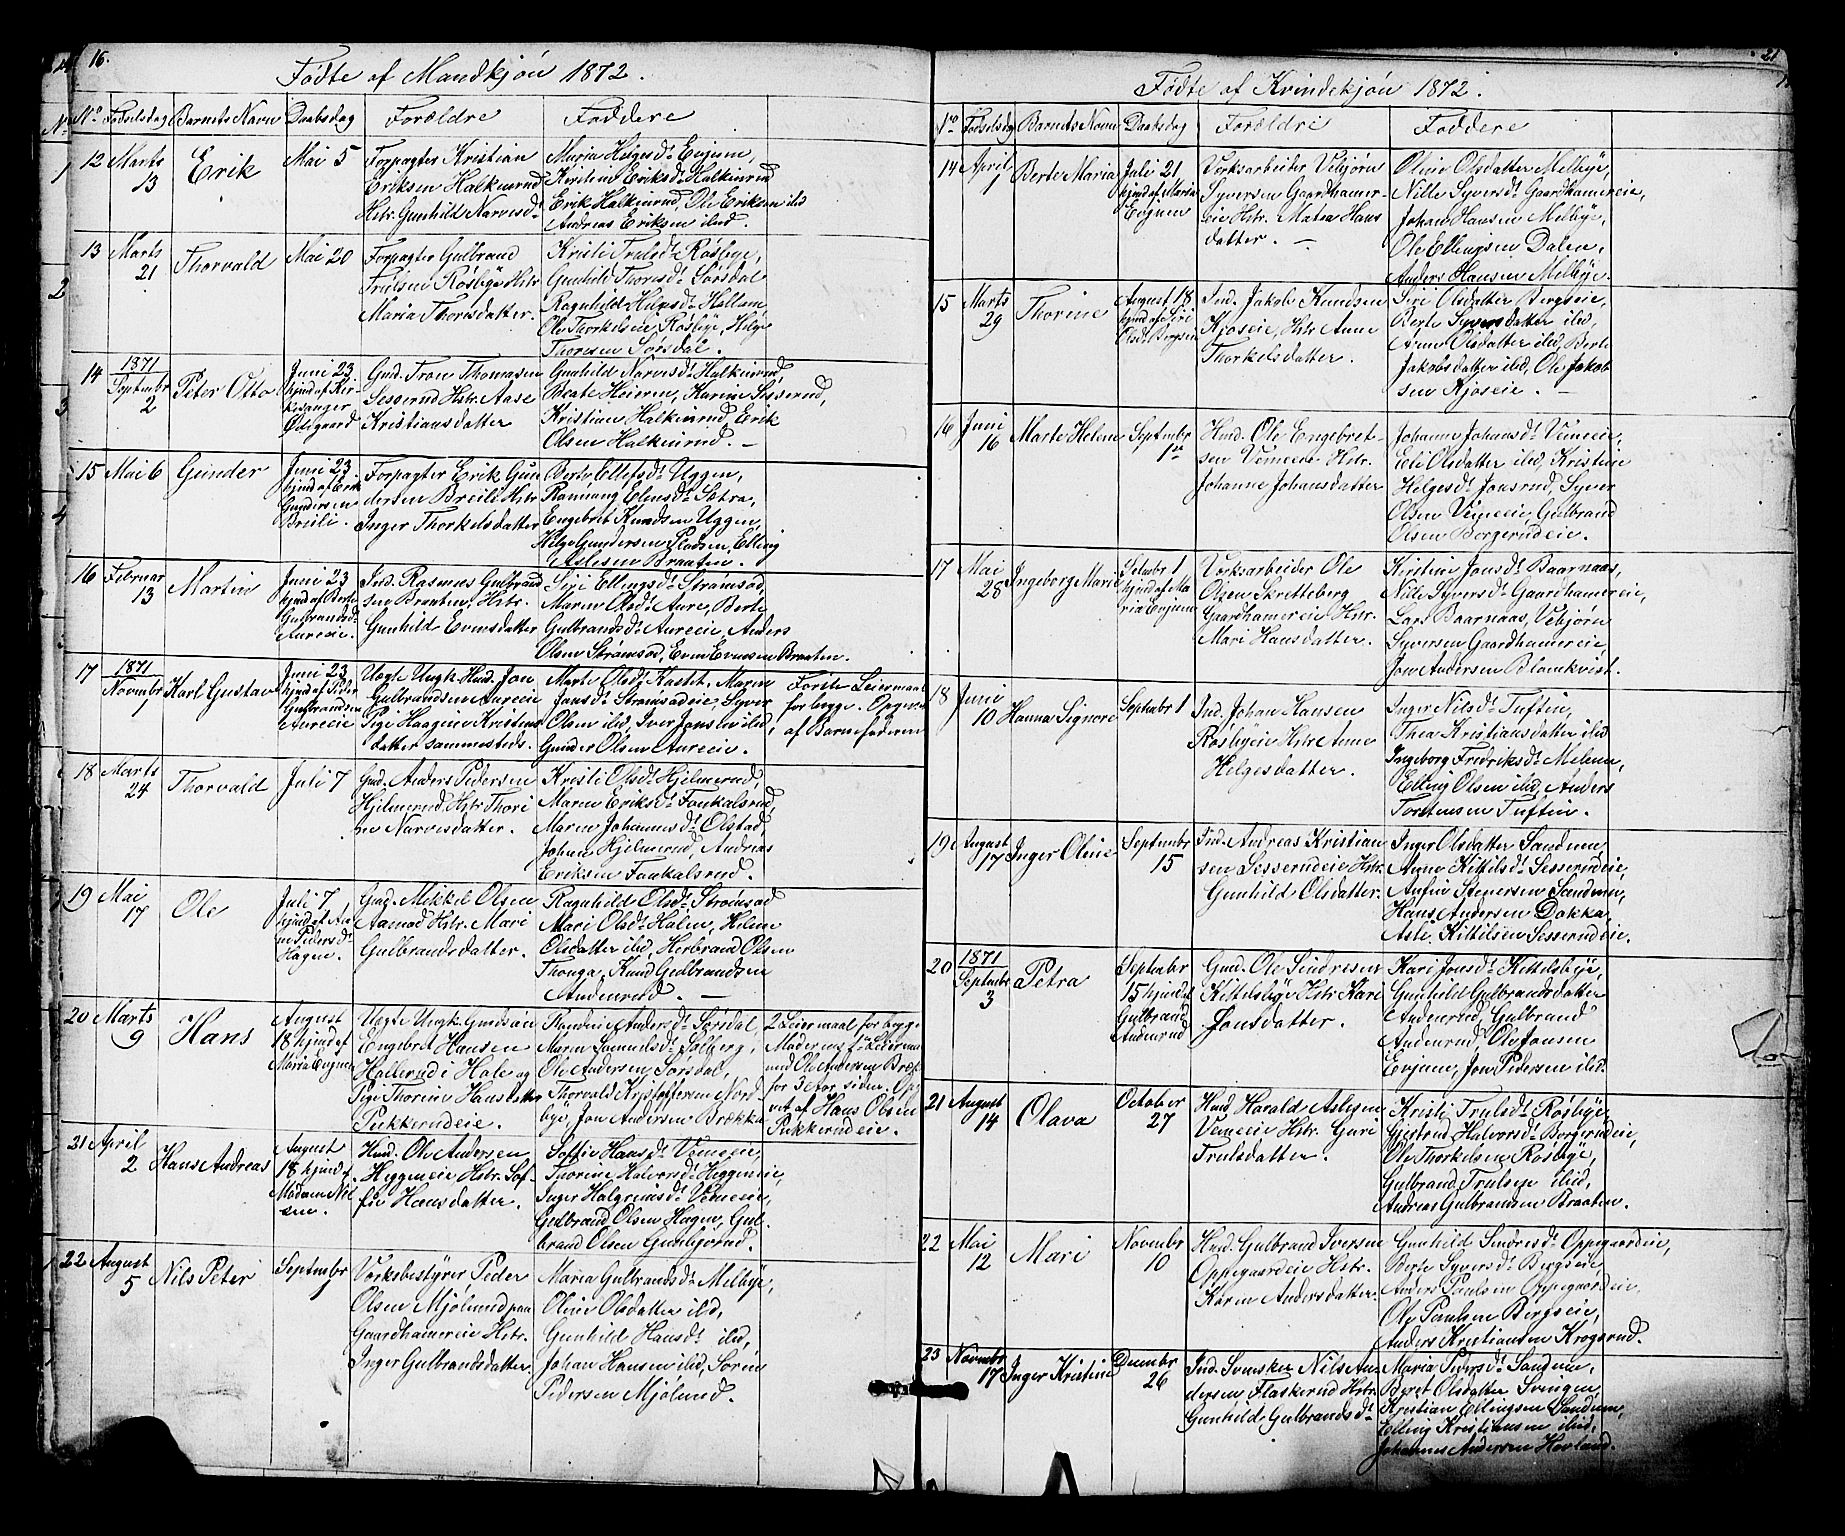 16.
Fødte af Mandkjøn 1872.
No Fødselsdag Barnets Navn Daabsdag Forældre Faddere
12 Marts 13 Erik Mai 5
Forpagter Kristian
Eriksen Halkinrud
Hstr. Gunhild Narvesdr
Maria Helgesdr Evjum,
Kirstine Eriksdr Halkinrud
Erik Halkinrud, Ole Eriksen ibid
Andreas Eriksen ibid.
13 Marts 21 Thorvald Mai 20
Forpagter Gulbrand
Trulsen Røsbye Hstr
Maria Thorisdatter.
Kristi Trulsdr Røsbye,
Gunhild Thoresdr Sørsdal
Ragnhild Hansdr Hallum
Ole Thorkelseie Røsbye, Helge
Thoresen Sørsdal.
14 1871 Septembr 2 Peter Otto
Juni 23
hjmd af Kir-
kesanger
Ødegaard
Gmd. Tron Thomasen
Sesserud Hstr Aase
Kristiansdatter
Gunhild Narvesdr Halkinrud,
Beate Heieren, Karine Sesserud,
Kristian Halkinrud, Erik
Olsen Halkinrud. —
15 Mai 6 Gunder
Juni 23
hjmd af Erik
Gundersen
Breili.
Forpagter Erik Gun
dersen Breili Hstr
Inger Thorkelsdatter
Berte Ellefsdr Uggen,
Rannang Elensdr Sætra,
Engebret Knudsen Uggen,
Helge Gundersen Pladsen, Elling
Aslesen Braaten.
16 Februar 13 Martin
Juni 23
hjmd af Berte
Gulbrandsdr
Aureeie.
Ind. Rasmus Gulbrand
sen Braaten, Hstr.
Gunhild Evensdatter
Siri Ellingsdr Strømsød,
Maren Olsdr Aure, Berte
Gulbrandsdr Aureeie, Anders
Olsen Strømsød, Even Evensen Braaten.
17 1871 Novembr 1 Karl Gustav
Juni 23
hjmd af Peder
Gulbrandsen
Aureeie
Uægte Ungk. Hmd. Jon
Gulbrandsen Aureeie
Pige Haagine Kristians
datter sammesteds.
Marte Olsdr Kastet, Maren
Jonsdr Strømsødeie, Syver
Olsen ibid, Iver Jonsen ibid,
Gunder Olsen Aureeie.
Første Leiermaal
for begge. Opgivet
af Barnefaderen
18 Marts 24 Thorvald Juli 7
Gmd. Anders Pedersen
Hjelmerud Hstr Thori
ne Narvesdatter.
Kristi Olsdr Hjelmerud,
Maren Eriksdr Foukalsrud,
Maren Johannesdr Olstad,
Johan Hjelmerud, Andreas
Eriksen Foukalsrud.
19 Mai 17 Ole
Juli 7
hjmd af An-
ne Pedersdr
Hagen.
Gmd. Mikkel Olsen
Aamod Hstr. Mari
Gulbrandsdatter.
Ragnhild Olsdr Strømsød
Mari Olsdr Halen, Helene
Olsdatter ibid, Herbrand Olsen
Thonga, Knud Gulbrandsen
Andenrud. —
20 Marts 9 Hans
August
18 hjmd af
Maria Evjum
Uægte Ungk. Gmdsøn
Engebret Hansen
Hallerud i Hole og
Pige Thorine Hansdatter
Pukkerudeie.
Randine Andersdr Sørsdal,
Maren Samuelsdr Solberg,
Ole Andersen Sørsdal,
Thorvald Kristoffersen Nord-
bye, Jon Andersen Brækka
2 Leiermaal for begge
Moderens 1ste Leierm
med Ole Andersen Bræk
for 3 Aar siden. Opgi
vet af Hans Olsen
Pukkerudeie.
21 April 2 Hans Andreas
August
18 hjmd af
Madam Niel
sen.
Hmd. Ole Andersen
Heggeneie Hstr. Sof-
fie Hansdatter.
Soffie Hansdr Vemeeie,
Thorine Halvorsdr Heggeneie,
Inger Halgrimsdr Vemeeie,
Gulbrand Olsen Hagen, Gul-
brand Olsen Gunbjørud.
22 August 5 Nils Peter Septembr 1
Værksbestyrer Peder
Olsen Mjølnud paa
Gaardhamereie Hstr.
Inger Gulbrandsdatter.
Maria Gulbrandsdr Melbye,
Oline Olsdatter ibid,
Gunhild Hansdr ibid,
Johan Hansen ibid, Søren
Pedersen Mjølnud.
21
Fødte af Kvindekjøn 1872.
No Fødselsdag Barnets Navn Daabsdag Forældre Faddere
14 April 1 Berte Maria
Juli 21
hjmd af Maria
Evjum
Værksarbeider Vebjørn
Syversen Gaardhamer-
eie Hstr. Matea Hans
datter. —
Oline Olsdatter Melbye,
Nille Syversdr Gaardhamereie,
Johan Hansen Melbye,
Ole Ellingsen Dalen,
Anders Hansen Melbye.
15 Marts 29 Thorine
August 18
hjmd af Siri
Olsdr Bergseie
Ind. Jakob Knudsen
Kjøseie, Hstr Anne
Thorkelsdatter.
Siri Olsdatter Bergseie,
Berte Syversdatter ibid,
Anne Olsdatter ibid, Berte
Jakobsdatter ibid, Ole Jakob
sen Kjøseie. —
16 Juni 16 Marte Helene Septembr 1ste
Hmd. Ole Engebret-
sen Vemeeie Hstr.
Johanne Johansdatter
Johanne Johansdr Vemeeie,
Eli Olsdatter ibid, Kristine
Helgesdr Jonsrud, Syver
Olsen Vemeeie, Gulbrand
Olsen Borgerudeie.
17 Mai 28 Ingeborg Marie
Septembr 1
hjmd af Ma
ria Evjum
Værksarbeider Ole
Olsen Skretteberg
Gaardhamereie Hstr.
Mari Hansdatter.
Kristine Jonsdr Baarnaas,
Nille Syversdr Gaardhamereie,
Lars Baarnaas, Vebjørn
Syversen Gaardhamereie
Jon Andersen Blomkvist.
18 Juni 10 Hanna Signore Septembr 1
Ind. Johan Hansen
Røsbyeie Hstr Anne
Helgesdatter.
Inger Nilsdr Tuftin,
Thea Kristiansdatter ibid
Ingeborg Fredriksdr Melum,
Elling Olsen ibid, Anders
Torstensen Tuftin.
19 August 17 Inger Oline Septembr 15
Ind. Andreas Kristian
sen Sesserudeie Hstr.
Gunhild Olsdatter.
Inger Olsdatter Sandum
Anne Kittilsdr Sesserudeie,
Anfin Stenersen Sandum,
Hans Andersen Dokka,
Asle Kittilsen Sesserudeie.
20 1871 Septembr 3 Petra
Septembr
15 hjmd af
Gulbrand
Andenrud
Gmd. Ole Sindresen
Kittelsbye Hstr Kari
Jonsdatter.
Kari Jonsdr Kittelsbye,
Gunhild Gulbrandsdatter
Andenrud, Gulbrand
Andenrud, Ole Jonsen
Evjune, Jon Pedersen ibid.
21 August 14 Olava October 27
Hmd Harald Aslesen
Vemeeie Hstr. Guri
Trulsdatter.
Kristi Trulsdr Røsbye,
Gjertrud Halvorsdr Borgerudeie,
Ole Thorkelsen Røsbye,
Gulbrand Trulsen ibid,
Andreas Gulbrandsen Braaten.
22 Mai 12 Mari Novembr 10
Hmd. Gulbrand Iversen
Oppegaardeie Hstr.
Karen Andersdatter.
Gunhild Sindresdr Oppegaardeie,
Berte Syversdr Bergseie,
Anders Paulsen Oppegaardeie,
Ole Paulsen Bergseie,
Anders Kristiansen Krogsrud.
23 Novembr 17 Inger Kristine Decembr 26
Ind. Svensker Nils An-
dersen Flaskerud Hstr.
Gunhild Gulbrandsdr
Maria Pedersdr Sandum,
Beret Olsdatter Svingen,
Kristian Ellingsen Sandum,
Elling Kristiansen ibid,
Johannes Andersen Hovland.